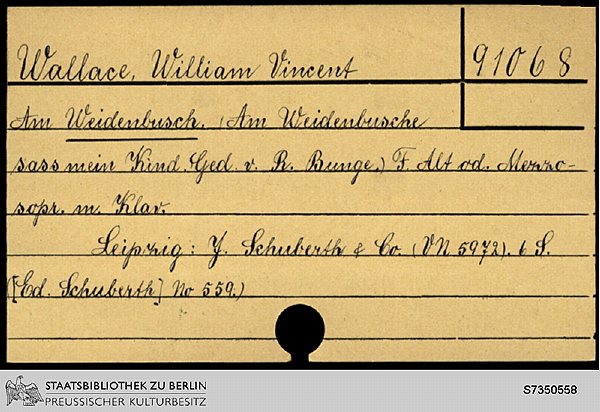 Wallace, William Vincent
91068
Am Weidenbusch. (Am Weidenbusche
sass mein Kind. Ged. v. R. Bunge.) F. Alt od. Mezzo-
sopr. m. Klav.
Leipzig: J. Schuberth & Co. (VN 5972). 6 S.
([Ed. Schuberth] No 559.)
STAATSBIBLIOTHEK ZU BERLIN
PREUSSISCHER KULTURBESITZ
S7350558